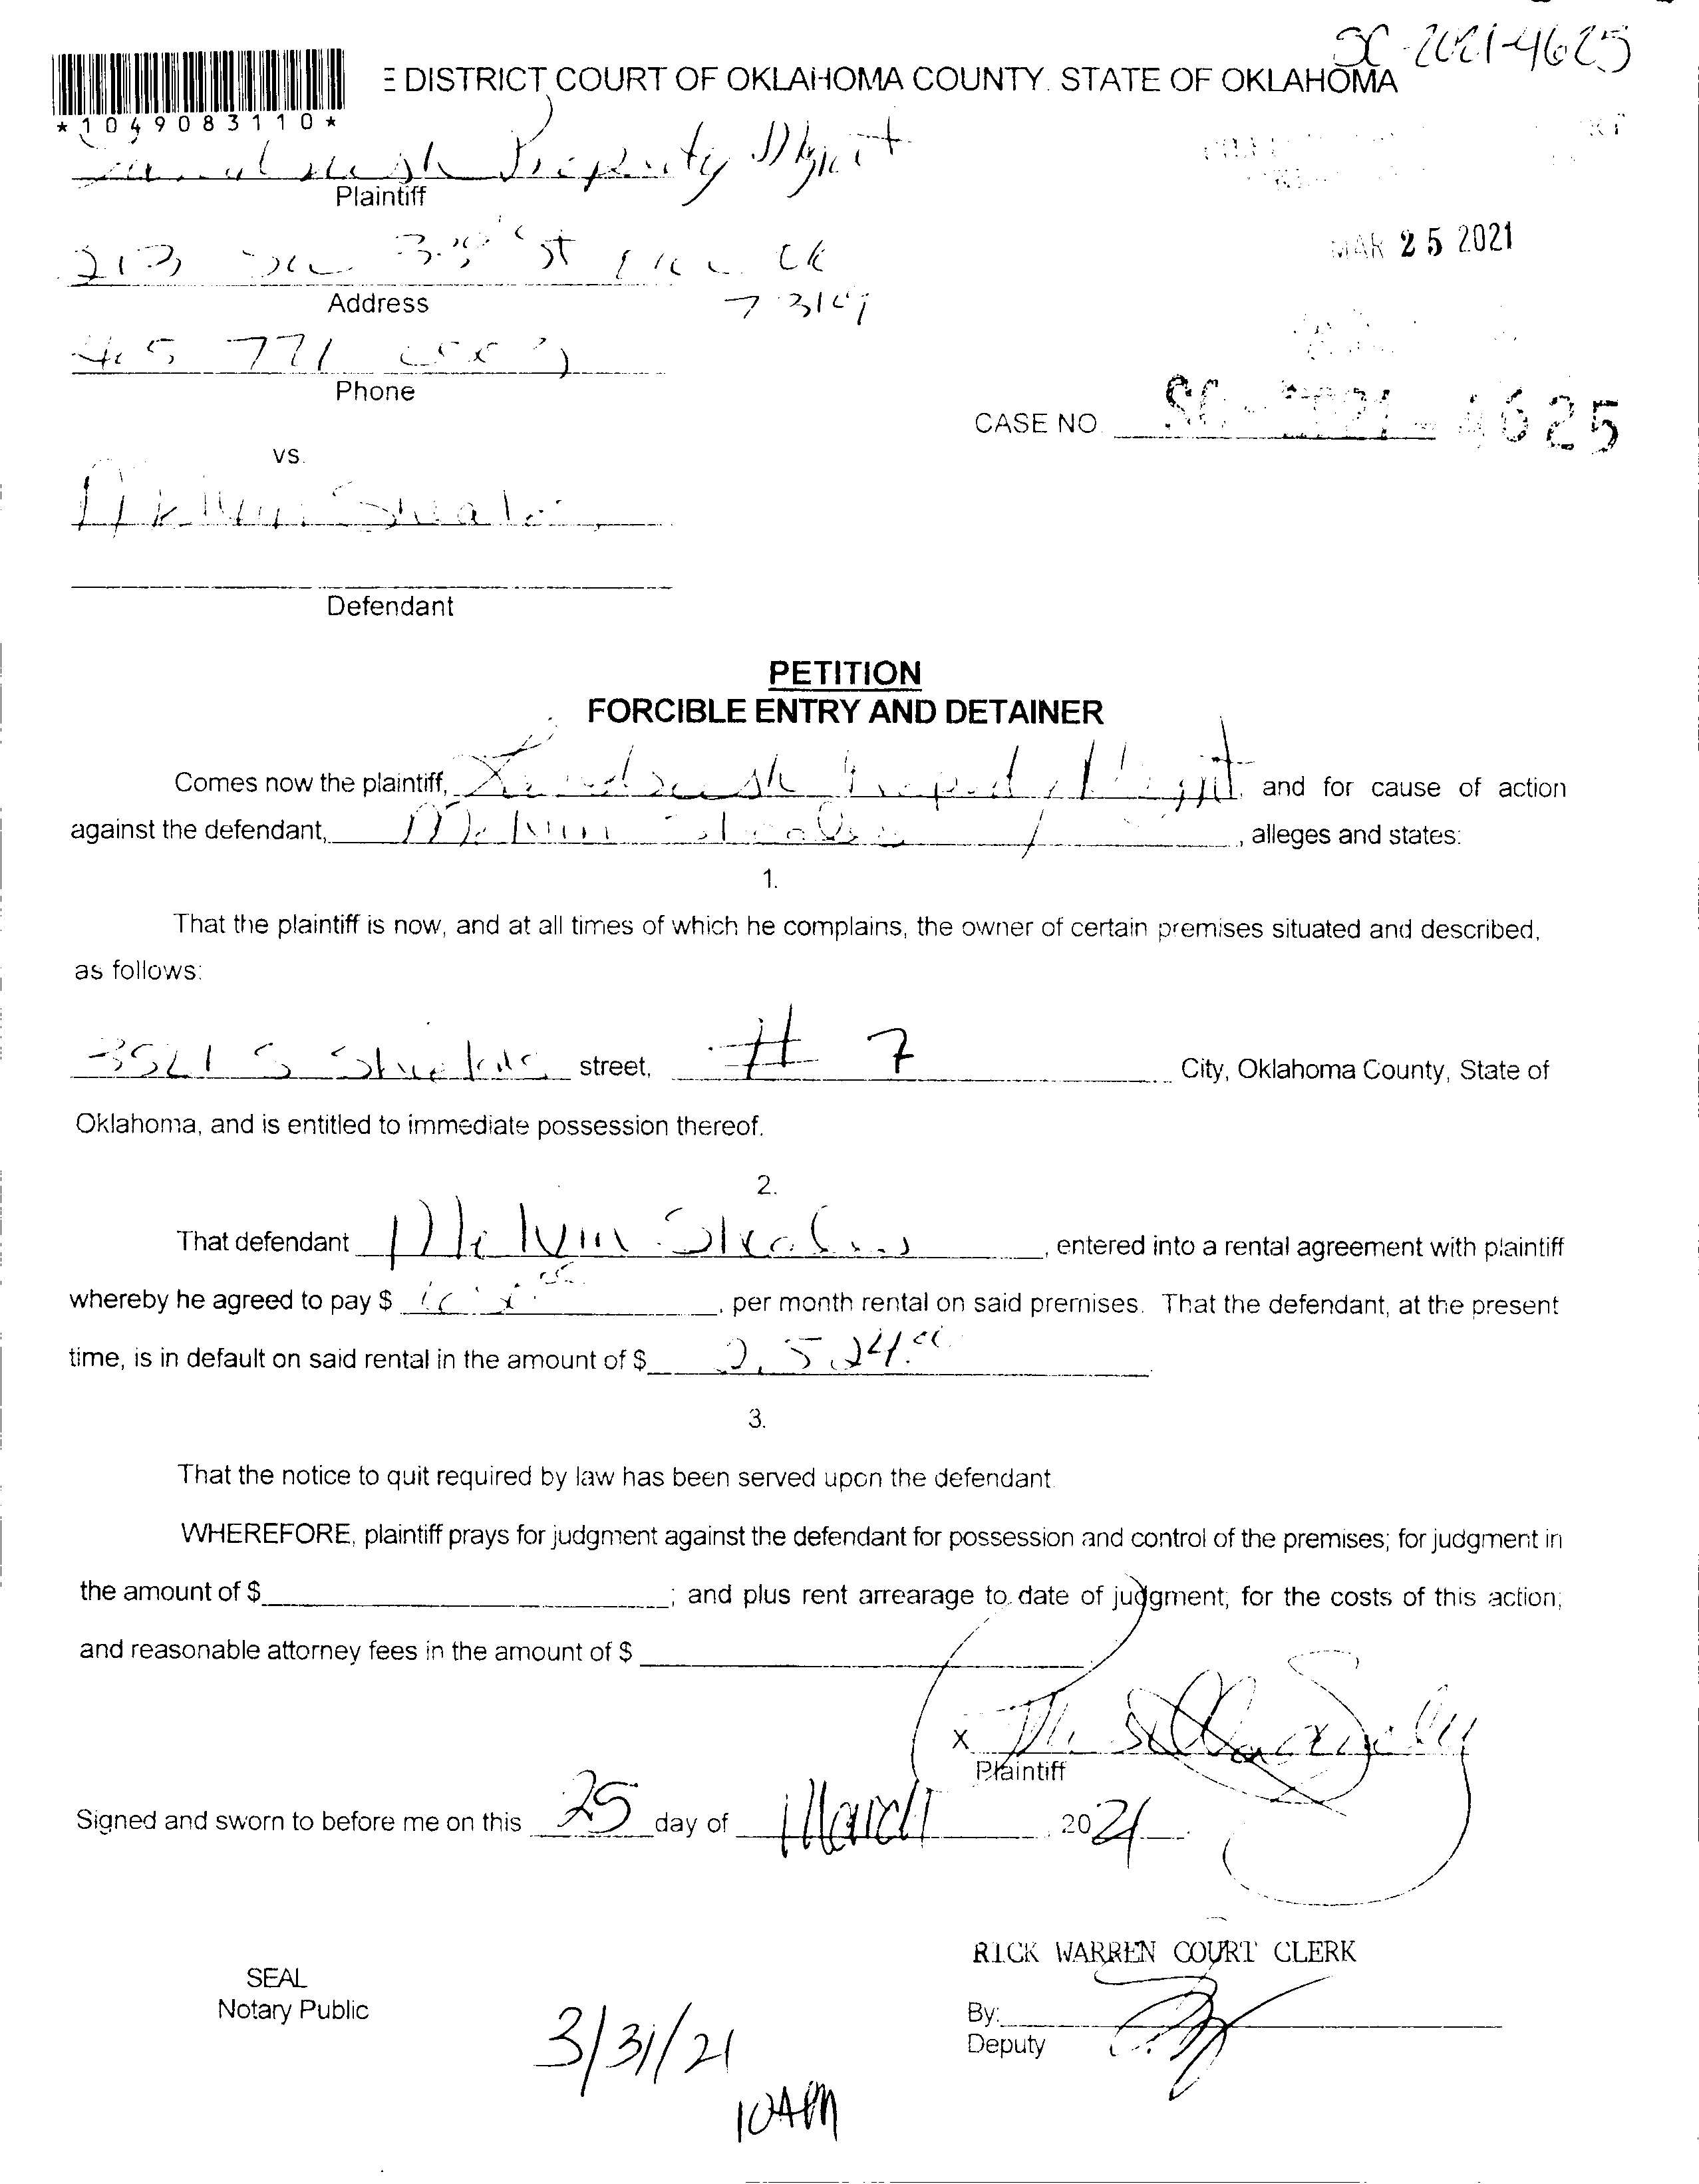 SC-2021-4625
E DISTRICT COURT OF OKLAHOMA COUNTY. STATE OF OKLAHOMA
*1049083110*
Property Mgmt
Plaintiff
MAR 25 2021
213 St OK
Address
73109
405 771
Phone
CASE NO. SC-2021-4625
vs.
Melvin
Defendant
PETITION
FORCIBLE ENTRY AND DETAINER
Comes now the plaintiff, Mgmt, and for cause of action
against the defendant, Melvin, alleges and states:
1.
That the plaintiff is now, and at all times of which he complains, the owner of certain premises situated and described,
as follows:
3521 S Shields street, # 7 City, Oklahoma County, State of
Oklahoma, and is entitled to immediate possession thereof.
2.
That defendant Melvin, entered into a rental agreement with plaintiff
whereby he agreed to pay $, per month rental on said premises. That the defendant, at the present
time, is in default on said rental in the amount of $ 2,524.00
3.
That the notice to quit required by law has been served upon the defendant
WHEREFORE, plaintiff prays for judgment against the defendant for possession and control of the premises; for judgment in
the amount of $; and plus rent arrearage to date of judgment; for the costs of this action;
and reasonable attorney fees in the amount of $
X
Plaintiff
Signed and sworn to before me on this 25 day of March 2021
RICK WARREN COURT CLERK
SEAL
Notary Public
By:
Deputy
3/31/21
10AM